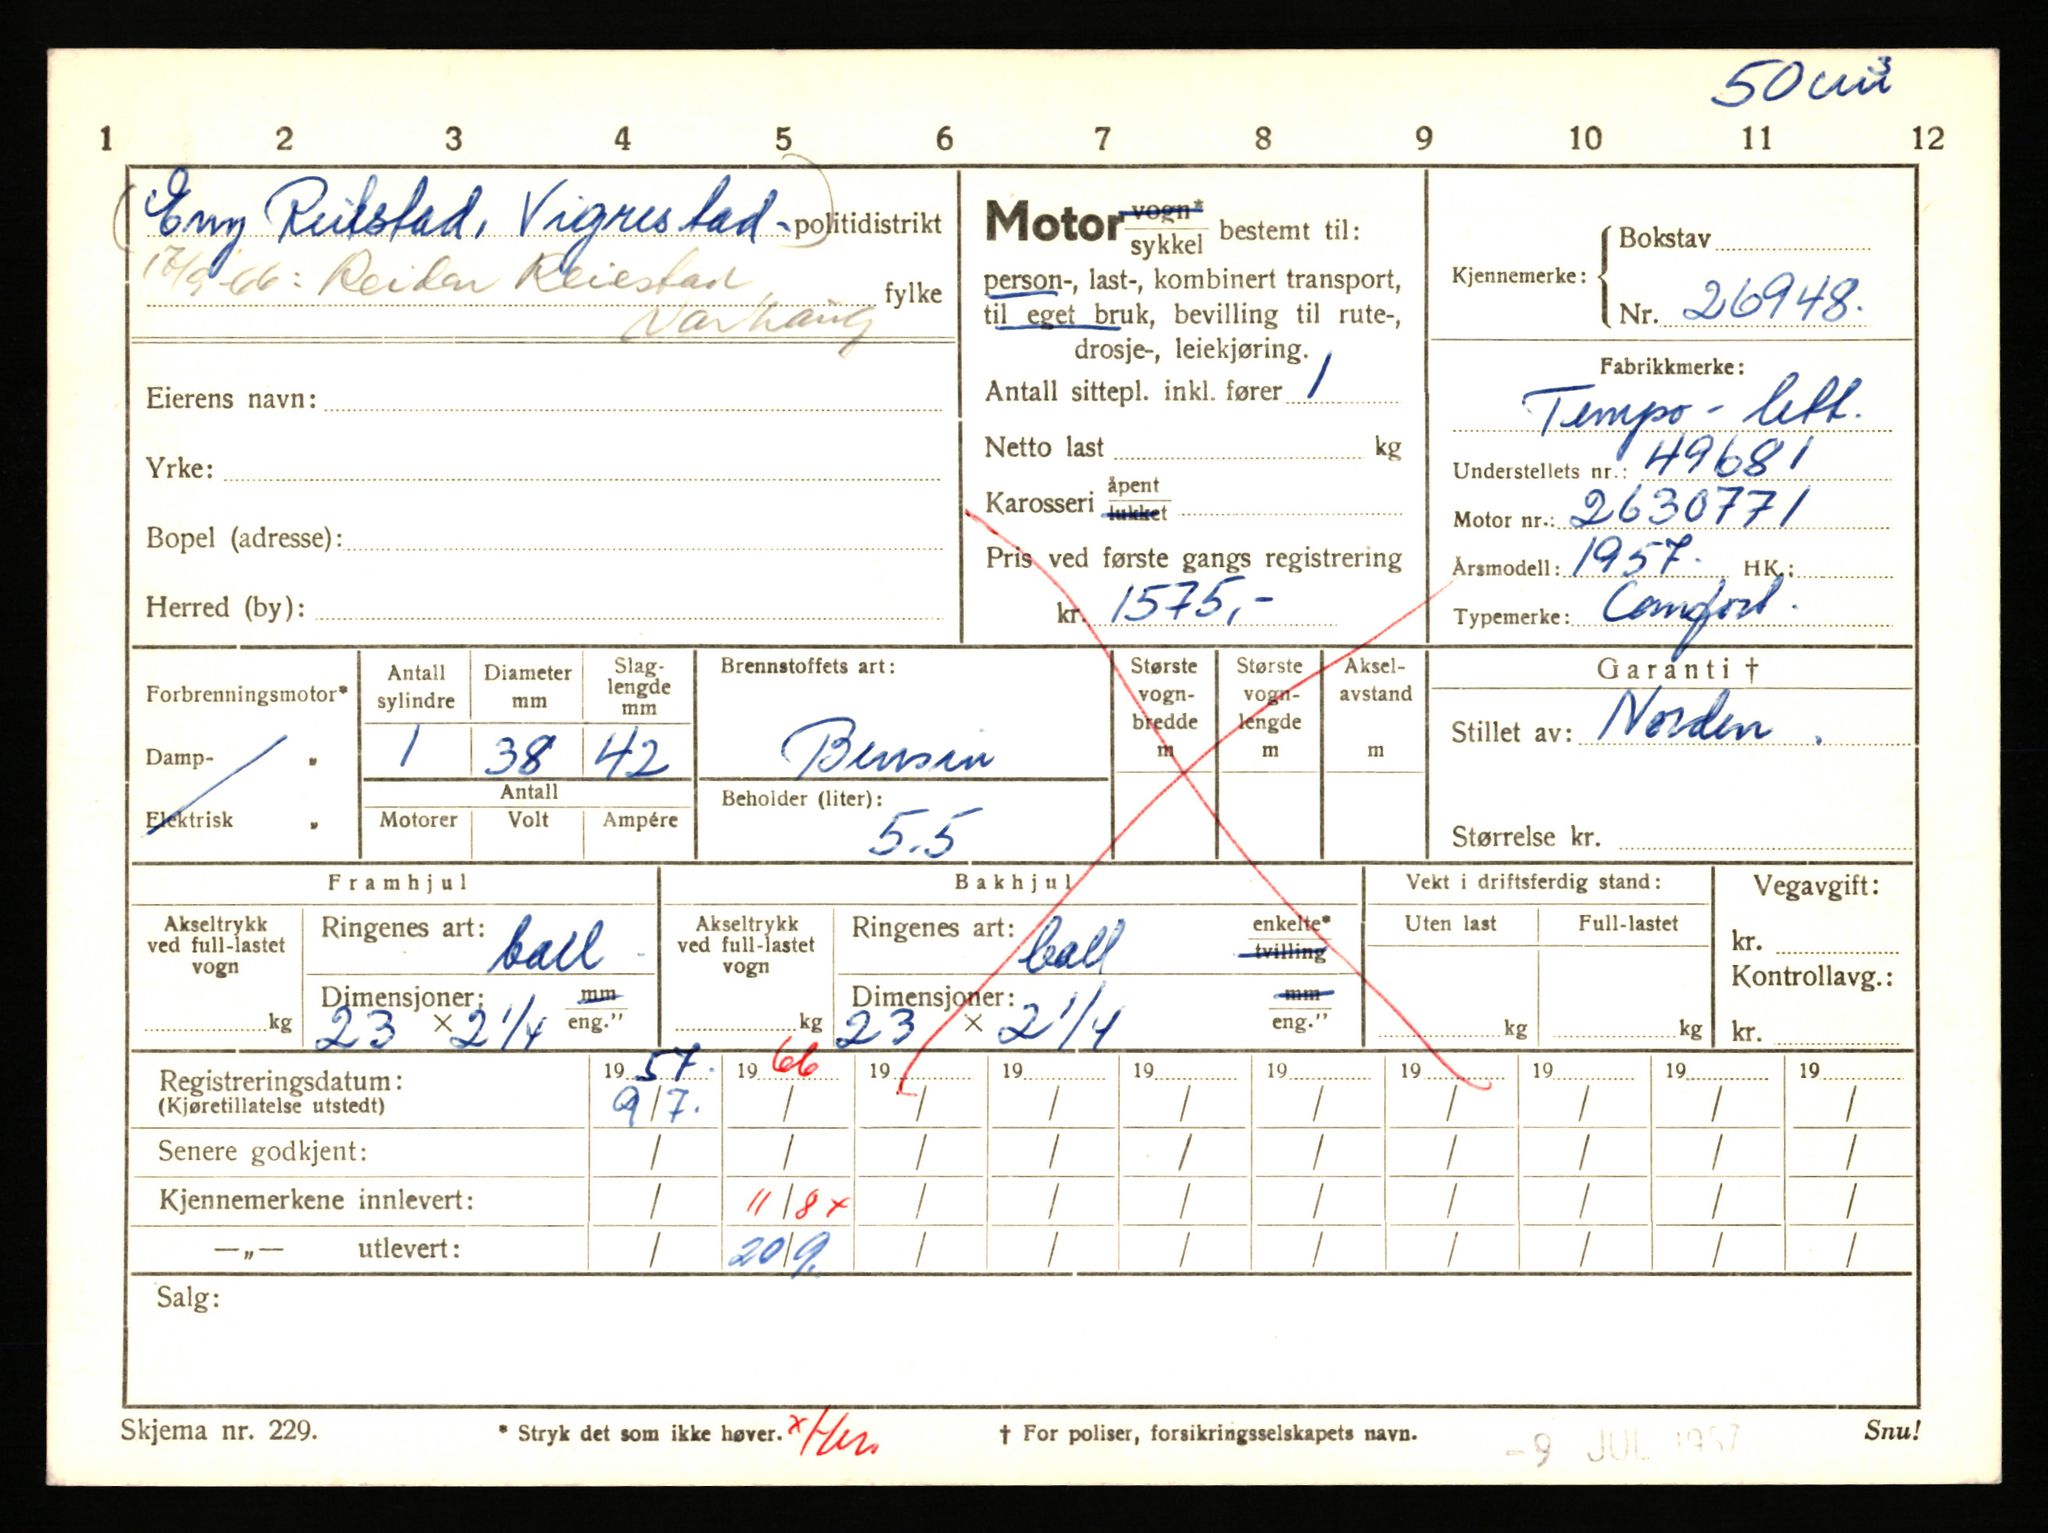 50 cm³
1 2 3 4 5 6 7 8 9 10 11 12
Eny Reiestad, Vigrestad politidistrikt
17/9-66: Reidar Reiestad
Varhaug fylke
Eierens navn:
Yrke:
Bopel (adresse):
Herred (by):
Motor vogn*
sykkel bestemt til:
person-, last-, kombinert transport,
til eget bruk, bevilling til rute-,
drosje-, leiekjøring.
Antall sittepl. inkl. fører 1
Netto last kg
Karosseri åpent
lukket
Pris ved første gangs registrering
kr. 1575,-
Kjennemerke: Bokstav
Nr. 26948.
Fabrikkmerke:
Tempo - lett.
Understellets nr.: 49681
Motor nr.: 2630771
Årsmodell: 1957. HK.:
Typemerke: Comfort.
Forbrenningsmotor*
Damp- "
Elektrisk "
Antall sylindre Diameter mm Slag-lengde mm
1 38 42
Antall
Motorer Volt Ampére
Brennstoffets art:
Bensin
Beholder (liter):
5.5
Største vogn-bredde m
Største vogn-lengde m
Aksel-avstand m
Garanti †
Stillet av: Norden.
Størrelse kr.
Framhjul
Akseltrykk ved full-lastet vogn
kg
Ringenes art: ball
Dimensjoner: mm
23 × 2 1/4 eng."
Bakhjul
Akseltrykk ved full-lastet vogn
kg
Ringenes art: ball enkelte*
tvilling
Dimensjoner: mm
23 × 2 1/4 eng."
Vekt i driftsferdig stand:
Uten last Full-lastet
kg kg
Vegavgift:
kr.
Kontrollavg.:
kr.
Registreringsdatum: 19 57. 19 66 19 19 19 19 19 19 19 19
(Kjøretillatelse utstedt) 9/7. / / / / / / / / /
Senere godkjent: / / / / / / / / / /
Kjennemerkene innlevert: / 11/8 x / / / / / / / /
—„— utlevert: / 20/9. / / / / / / / /
Salg:
Skjema nr. 229. * Stryk det som ikke høver. † For poliser, forsikringsselskapets navn. -9 JUL 1957 Snu!